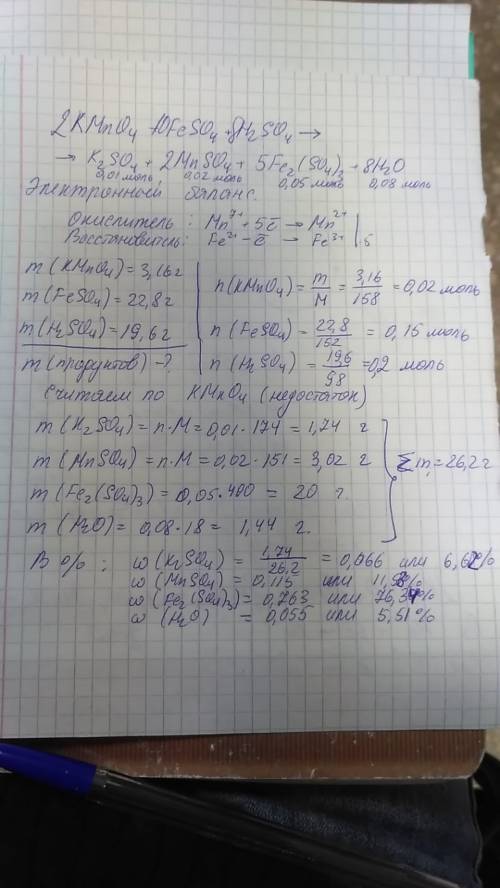 2KMnO4 + 10FeSO4 + 8H2SO4 →
→ K2SO4 + 2MnSO4 + 5Fe2(SO4)3 + 8H2O
0,01 моль 0,02 моль 0,05 моль 0,08 моль
Электронный баланс.
Окислитель : Mn7+ + 5ē → Mn2+
Восстановитель: Fe2+ - ē → Fe3+ | 5
m (KMnO4) = 3,16г
m (FeSO4) = 22,8г
m (H2SO4) = 19,6г
m (продуктов) - ?
n (KMnO4) = m/M = 3,16/158 = 0,02 моль
n (FeSO4) = 22,8/152 = 0,15 моль
n (H2SO4) = 196/98 = 0,2 моль
Считаем по KMnO4 (недостаток)
m (K2SO4) = n·M = 0,01·174 = 1,74 г
m (MnSO4) = n·M = 0,02·151 = 3,02 г
m (Fe2(SO4)3) = 0,05·400 = 20 г.
m (H2O) = 0,08·18 = 1,44 г.
Σm = 26,2 г
В % : ω (K2SO4) = 1,74/26,2 = 0,066 или 6,62%
ω (MnSO4) = 0,115 или 11,53%
ω (Fe2(SO4)3) = 0,763 или 76,34%
ω (H2O) = 0,055 или 5,51%